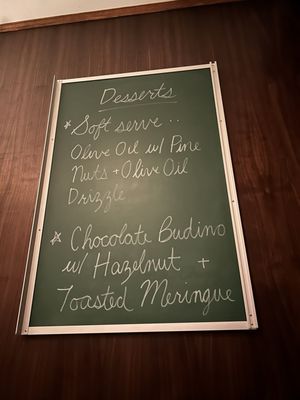 Desserts
* Soft serve..
Olive Oil w/ Pine
Nuts + Olive Oil
Drizzle
* Chocolate Budino
w/ Hazelnut +
Toasted Meringue